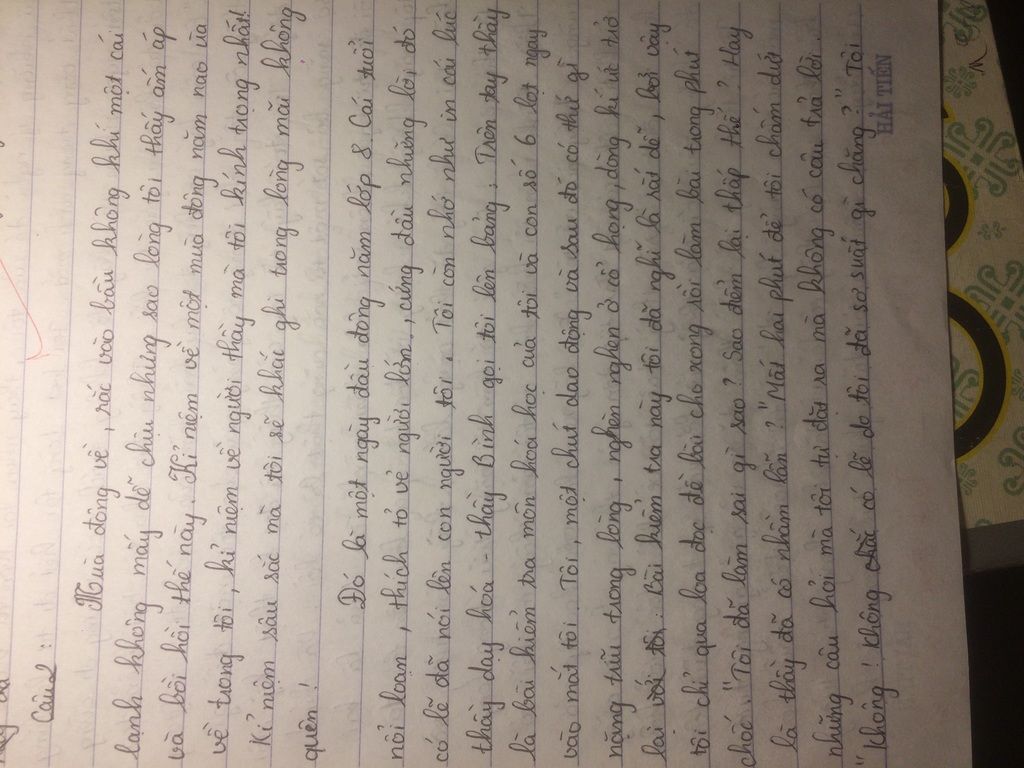 Câu 2:
Mùa đông về, rắc vào bầu không khí một cái
lạnh không mấy dễ chịu nhưng sao lòng tôi thấy ấm áp
và bồi hồi thế này. Kỉ niệm về một mùa đông năm nao ùa
về trong tôi, kỉ niệm về người thầy mà tôi kính trọng nhất!
Kỉ niệm sâu sắc mà tôi sẽ khắc ghi trong lòng mãi không
quên!
Đó là một ngày đầu đông năm lớp 8. Cái tuổi
nổi loạn, thích tỏ vẻ người lớn, cứng đầu nhường lối đó
có lẽ đã nói lên con người tôi. Tôi còn nhớ như in cái lúc
thầy dạy hóa - thầy Bình gọi tôi lên bảng. Trên tay thầy
là bài kiểm tra môn hóa học của tôi và con số 6 lọt ngay
vào mắt tôi. Tôi, một chút dao động và sau đó có thứ gì
nặng trĩu trong lòng, nghèn nghẹn ở cổ họng, dòng kí ức trở
lại với tôi. Bài kiểm tra này tôi đã nghĩ là rất dễ, bởi vậy
tôi chỉ qua loa đọc đề bài cho xong rồi làm bài trong phút
chốc. "Tôi đã làm sai gì sao? Sao điểm lại thấp thế? Hay
là thầy đã có nhầm lẫn?" Mất hai phút để tôi chấm dứt
những câu hỏi mà tôi tự đặt ra mà không có câu trả lời.
"Không! Không có lẽ do tôi đã sơ suất gì chăng?" Tôi
HẢI TIẾN